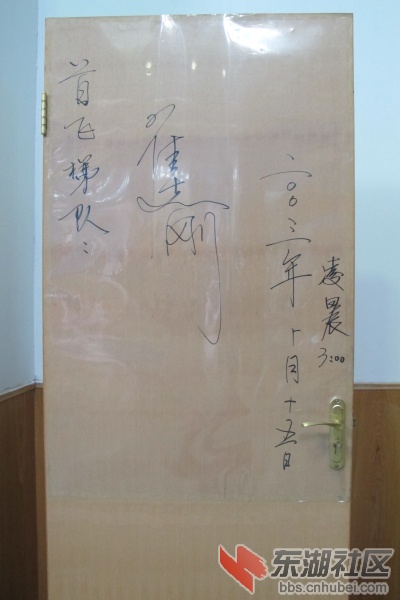 首飞梯队:
翟志刚
二00三年十月十五日
凌晨3:00
东湖社区
bbs.cnhubei.com